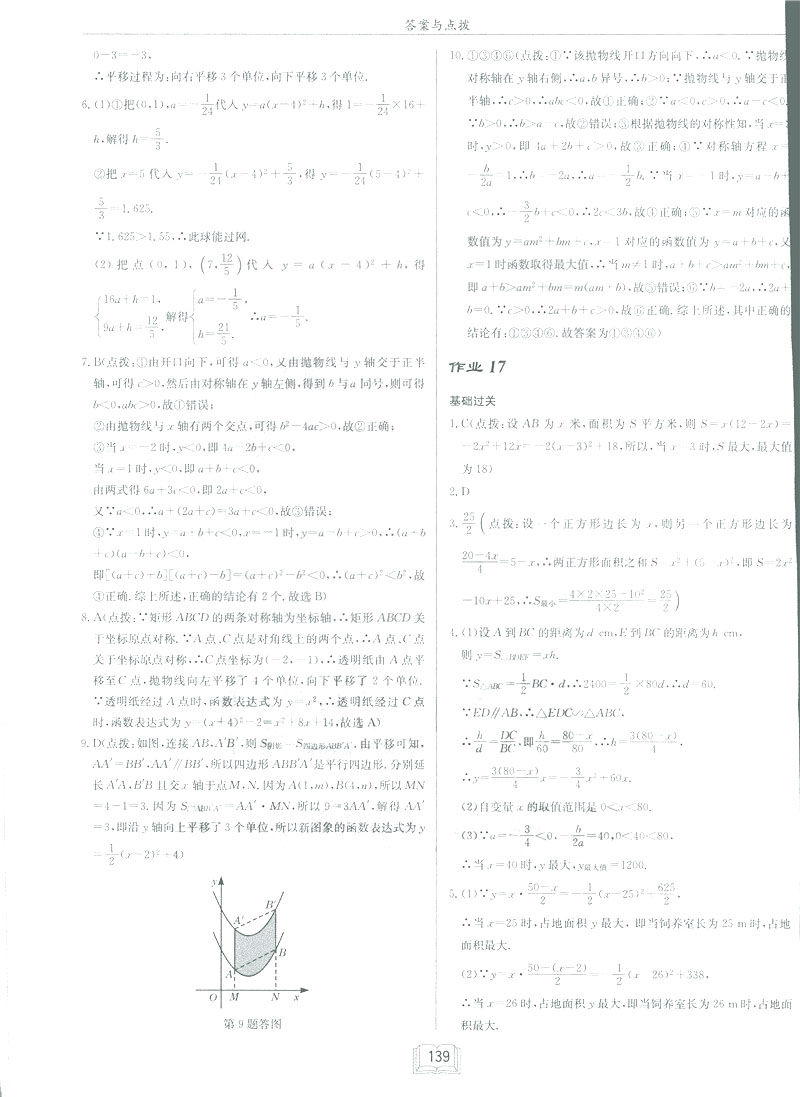 答案与点拨
0-3=-3,
∴平移过程为:向右平移3个单位,向下平移3个单位.
6.(1)①把(0,1),a=-1/24代入y=a(x-4)²+h,得1=-1/24×16+
h,解得h=5/3.
②把x=5代入y=-1/24(x-4)²+5/3,得y=-1/24(5-4)²+
5/3=1.625.
∵1.625>1.55,∴此球能过网.
(2)把点(0,1),(7,12/5)代入y=a(x-4)²+h,得
{16a+h=1, 9a+h=12/5, 解得{a=-1/5, h=21/5. ∴a=-1/5.
7.B(点拨:①由开口向下,可得a<0,又由抛物线与y轴交于正半
轴,可得c>0,然后由对称轴在y轴左侧,得到b与a同号,则可得
b<0,abc>0,故①错误;
②由抛物线与x轴有两个交点,可得b²-4ac>0,故②正确;
③当x=-2时,y<0,即4a-2b+c<0,
当x=1时,y<0,即a+b+c<0,
由两式得6a+3c<0,即2a+c<0,
又∵a<0,∴a+(2a+c)=3a+c<0,故③错误;
④∵x=1时,y=a+b+c<0,x=-1时,y=a-b+c>0,∴(a+b
+c)(a-b+c)<0,
即[(a+c)+b][(a+c)-b]=(a+c)²-b²<0,∴(a+c)²<b²,故
④正确.综上所述,正确的结论有2个.故选B)
8.A(点拨:∵矩形ABCD的两条对称轴为坐标轴,∴矩形ABCD关
于坐标原点对称.∵A点、C点是对角线上的两个点,∴A点、C点
关于坐标原点对称,∴C点坐标为(-2,-1),∴透明纸由A点平
移至C点,抛物线向左平移了4个单位,向下平移了2个单位.
∵透明纸经过A点时,函数表达式为y=x²,∴透明纸经过C点
时,函数表达式为y=(x+4)²-2=x²+8x+14,故选A)
9.D(点拨:如图,连接AB,A′B′,则S阴影=S四边形ABB′A′,由平移可知,
AA′=BB′,AA′∥BB′,所以四边形ABB′A′是平行四边形.分别延
长A′A,B′B且交x轴于点M,N.因为A(1,m),B(4,n),所以MN
=4-1=3.因为S▱ABB′A′=AA′·MN,所以9=3AA′,解得AA′
=3,即沿y轴向上平移了3个单位,所以新图象的函数表达式为y
=1/2(x-2)²+4)
y
A′
B′
A
B
O M N x
第9题答图
10.①③④⑥(点拨:①∵该抛物线开口方向向下,∴a<0.∵抛物线
对称轴在y轴右侧,∴a,b异号,∴b>0;∵抛物线与y轴交于正
半轴,∴c>0,∴abc<0,故①正确;②∵a<0,c>0,∴a-c<0.
∵b>0,∴b>a-c,故②错误;③根据抛物线的对称性知,当x=
时,y>0,即4a+2b+c>0,故③正确;④∵对称轴方程x=
-b/2a=1,∴b=-2a,∴a=-1/2b.∵当x=-1时,y=a-b+
c<0,∴-3/2b+c<0,∴2c<3b,故④正确;⑤∵x=m对应的函
数值为y=am²+bm+c,x=1对应的函数值为y=a+b+c,又
x=1时函数取得最大值,∴当m≠1时,a+b+c>am²+bm+c,
即a+b>am²+bm=m(am+b),故⑤错误;⑥∵b=-2a,∴2a+
b=0.∵c>0,∴2a+b+c>0,故⑥正确.综上所述,其中正确的
结论有:①③④⑥.故答案为①③④⑥)
作业17
基础过关
1.C(点拨:设AB为x米,面积为S平方米,则S=x(12-2x)=
-2x²+12x=-2(x-3)²+18,所以,当x=3时,S最大,最大值
为18)
2.D
3.25/2(点拨:设一个正方形边长为x,则另一个正方形边长为
(20-4x)/4=5-x,∴两正方形面积之和S=x²+(5-x)²,即S=2x²
-10x+25,∴S最小=(4×2×25-10²)/(4×2)=25/2)
4.(1)设A到BC的距离为d cm,E到BC的距离为h cm,
则y=S▱BDEF=xh.
∵S△ABC=1/2BC·d,∴2400=1/2×80d,∴d=60.
∵ED∥AB,∴△EDC∽△ABC,
∴h/d=DC/BC,即h/60=(80-x)/80,∴h=3(80-x)/4.
∴y=3(80-x)/4 x=-3/4x²+60x.
(2)自变量x的取值范围是0<x<80.
(3)∵a=-3/4<0,-b/2a=40,0<40<80,
∴当x=40时,y最大,y最大值=1200.
5.(1)∵y=x·(50-x)/2=-1/2(x-25)²+625/2,
∴当x=25时,占地面积y最大,即当饲养室长为25m时,占地
面积最大.
(2)∵y=x·(50-(x-2))/2=-1/2(x-26)²+338,
∴当x=26时,占地面积y最大,即当饲养室长为26m时,占地面
积最大.
139